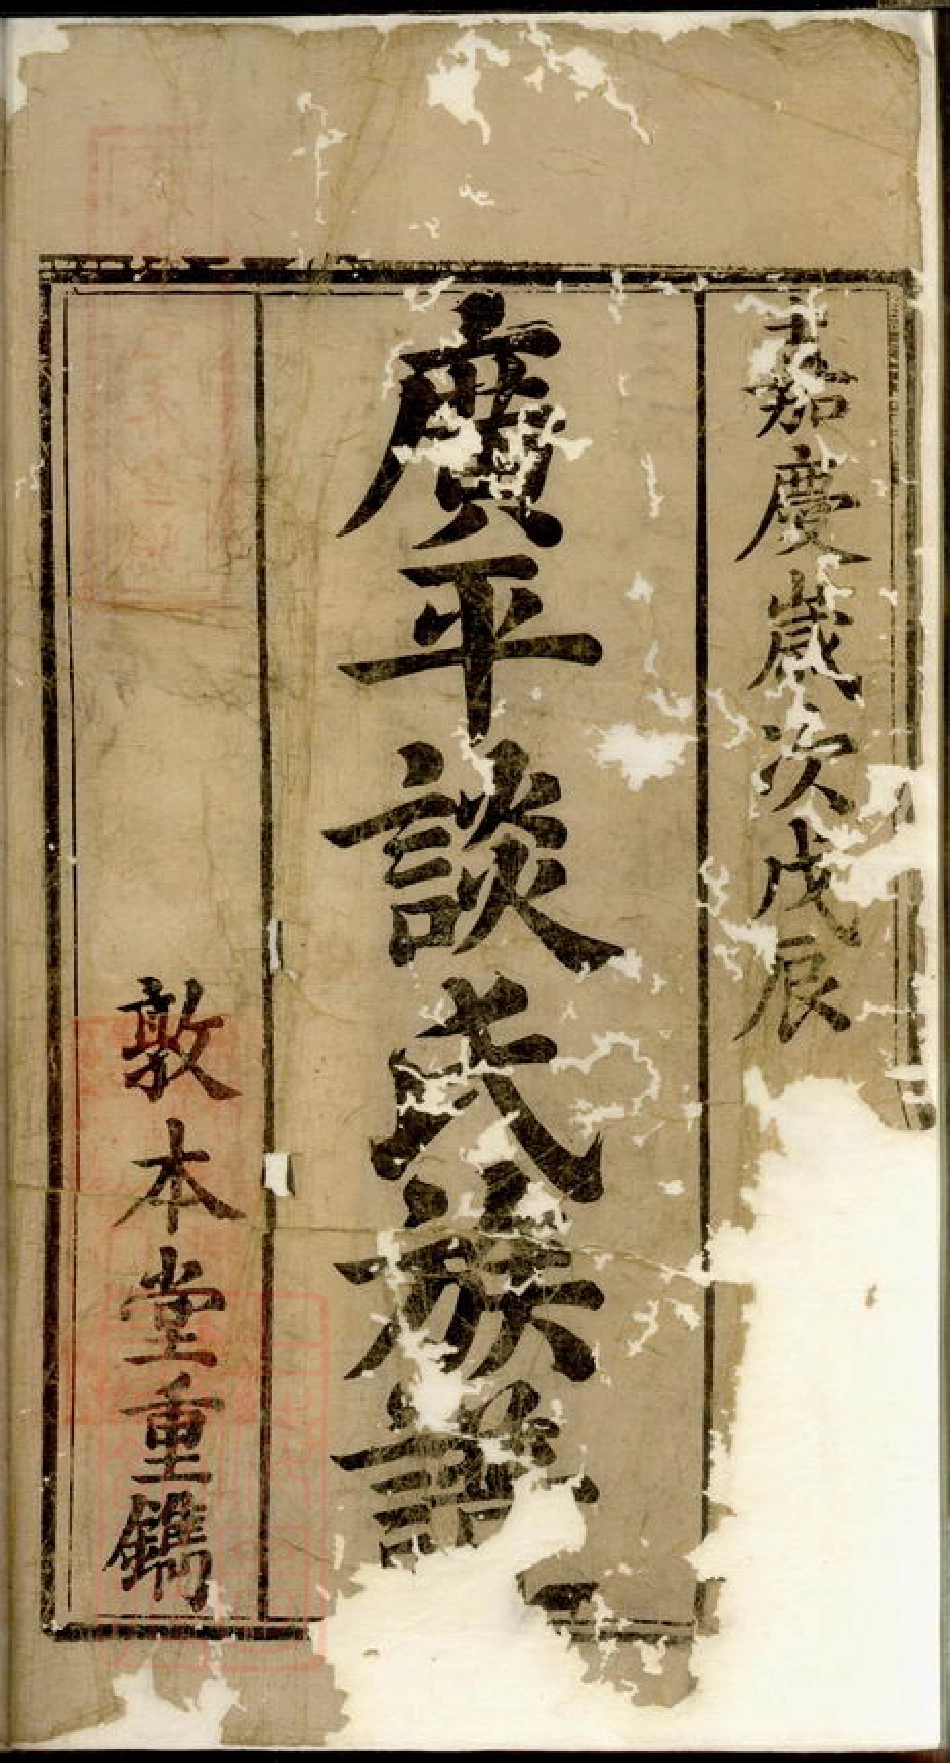 嘉慶歲次戊辰
廣平談氏族譜
敦本堂重鐫